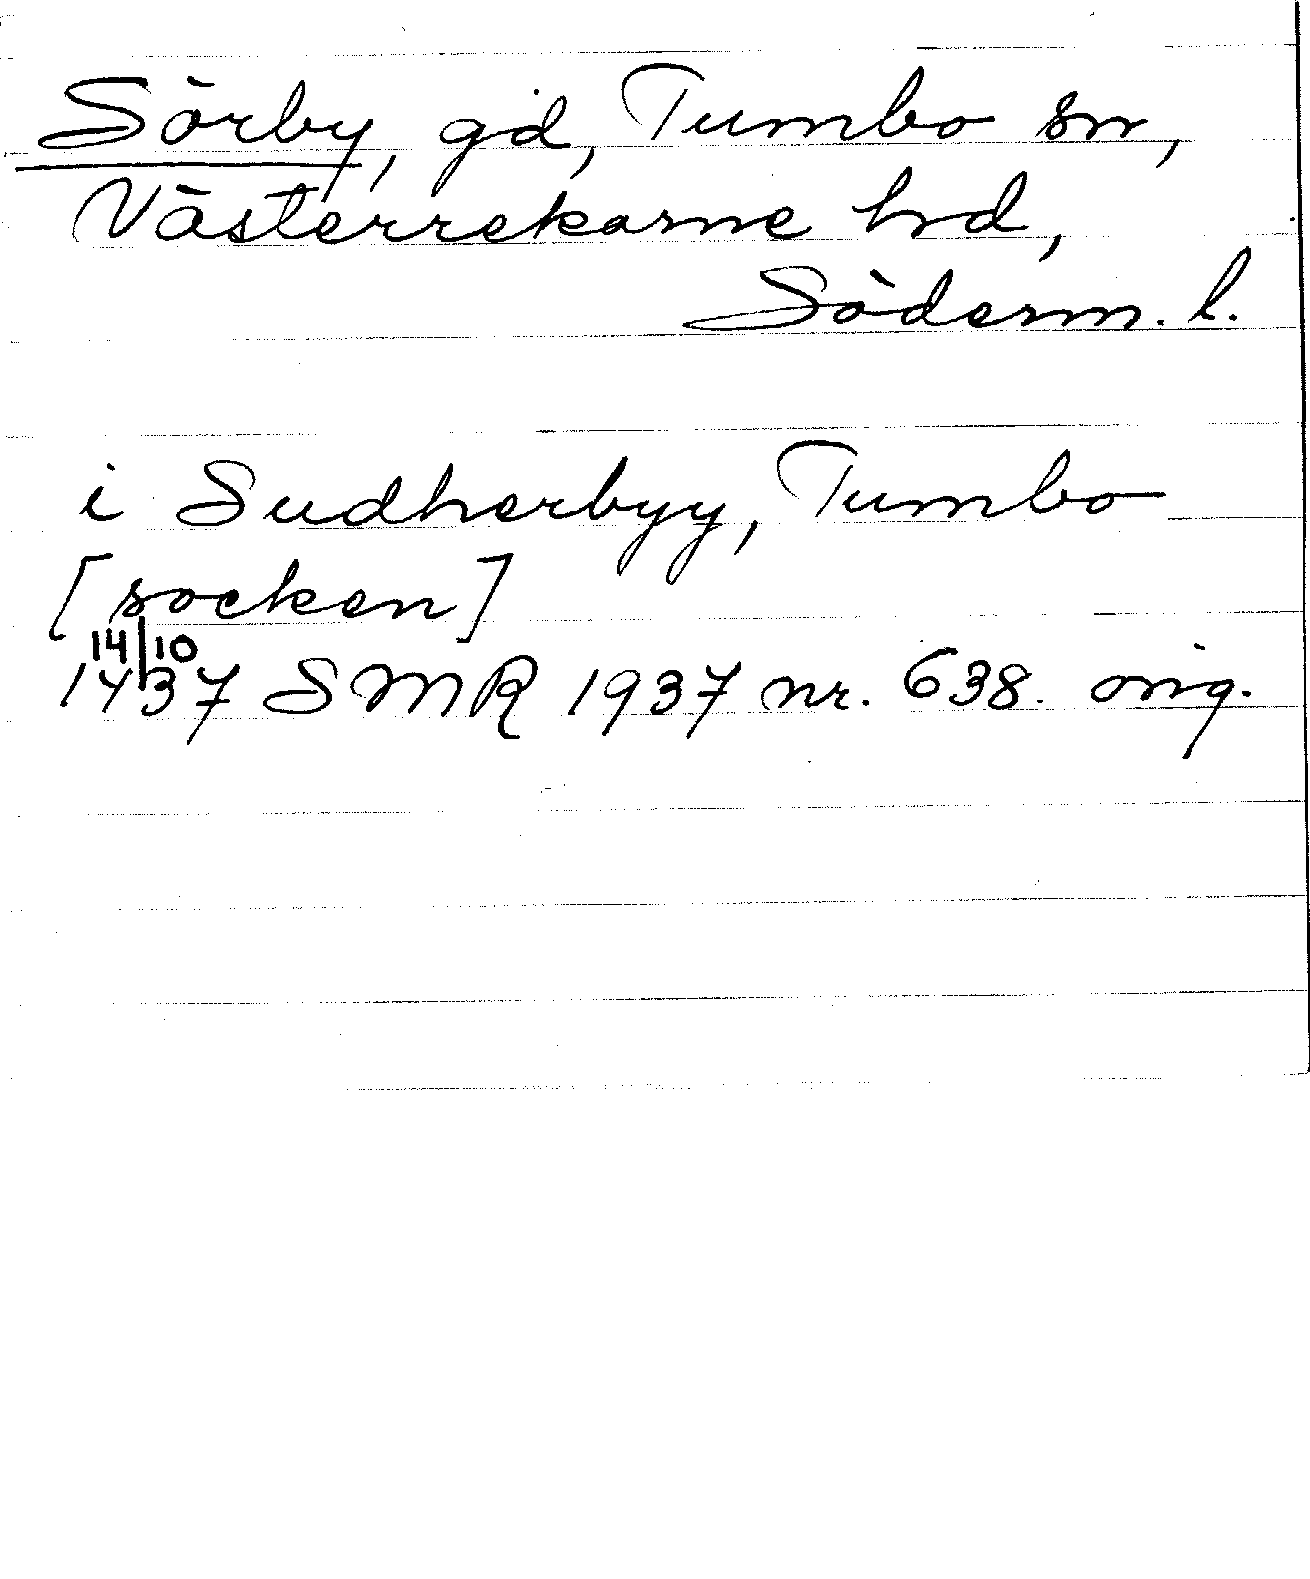 Sörby, gd, Tumbo sn,
Västerrekarne hd,
Söderm. l.
i Sudherbyy, Tumbo
[socken]
14/10
1437 SMR 1937 nr. 638. orig.